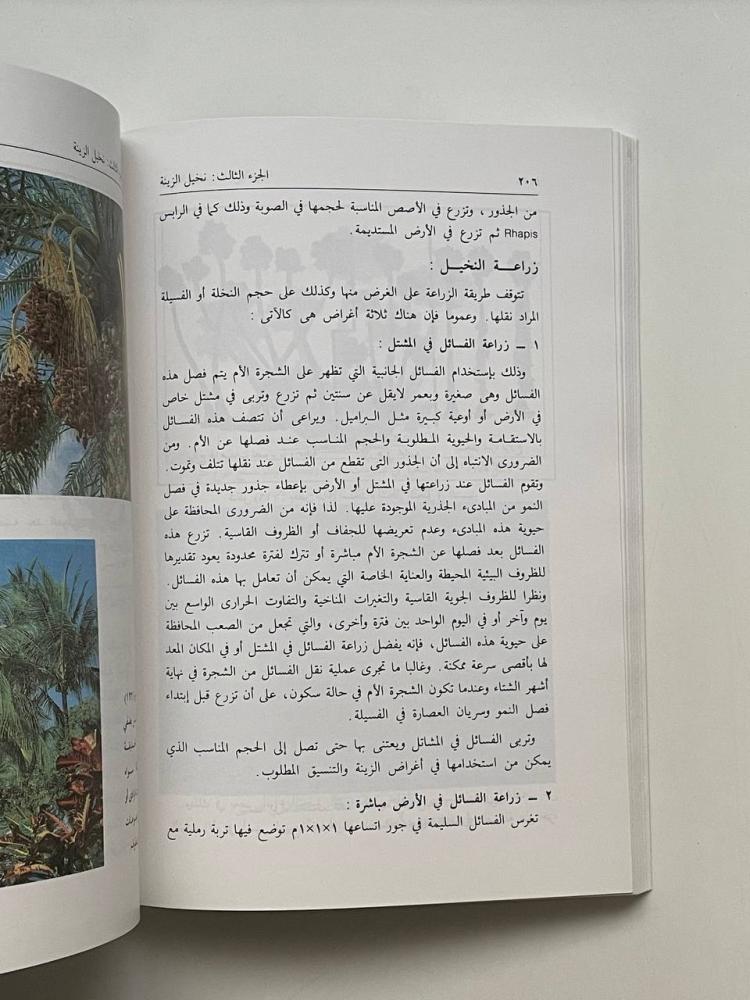 ٢٠٦
الجزء الثالث : نخيل الزينة
من الجذور ، وتزرع في الأصص المناسبة لحجمها في الصوبة وذلك كما في الرابس
Rhapis ثم تزرع في الأرض المستديمة .
زراعـــة النخيـــل :
تتوقف طريقة الزراعة على الغرض منها وكذلك على حجم النخلة أو الفسيلة
المراد نقلها . وعموما فإن هناك ثلاثة أغراض هى كالآتى :
١ ــ زراعة الفسائل في المشتل :
وذلك بإستخدام الفسائل الجانبية التي تظهر على الشجرة الأم يتم فصل هذه
الفسائل وهى صغيرة وبعمر لايقل عن سنتين ثم تزرع وتربى في مشتل خاص
في الأرض أو أوعية كبيرة مثل البراميل . ويراعى أن تتصف هذه الفسائل
بالاستقامة والحيوية المطلوبة والحجم المناسب عند فصلها عن الأم . ومن
الضرورى الانتباه إلى أن الجذور التى تقطع من الفسائل عند نقلها تتلف وتموت .
وتقوم الفسائل عند زراعتها في المشتل أو الأرض بإعطاء جذور جديدة في فصل
النمو من المبادىء الجذرية الموجودة عليها . لذا فإنه من الضرورى المحافظة على
حيوية هذه المبادىء وعدم تعريضها للجفاف أو الظروف القاسية . تزرع هذه
الفسائل بعد فصلها عن الشجرة الأم مباشرة أو تترك لفترة محدودة يعود تقديرها
للظروف البيئية المحيطة والعناية الخاصة التي يمكن أن تعامل بها هذه الفسائل .
ونظرا للظروف الجوية القاسية والتغيرات المناخية والتفاوت الحرارى الواسع بين
يوم وآخر أو في اليوم الواحد بين فترة وأخرى ، والتي تجعل من الصعب المحافظة
على حيوية هذه الفسائل ، فإنه يفضل زراعة الفسائل في المشتل أو في المكان المعد
لها بأقصى سرعة ممكنة . وغالبا ما تجرى عملية نقل الفسائل من الشجرة في نهاية
أشهر الشتاء وعندما تكون الشجرة الأم في حالة سكون ، على أن تزرع قبل إبتداء
فصل النمو وسريان العصارة في الفسيلة .
وتربى الفسائل في المشاتل ويعتنى بها حتى تصل إلى الحجم المناسب الذي
يمكن من استخدامها في أغراض الزينة والتنسيق المطلوب .
٢ ــ زراعة الفسائل في الأرض مباشرة :
تغرس الفسائل السليمة في جور اتساعها ١×١×١م توضع فيها تربة رملية مع
نخيل الزينة